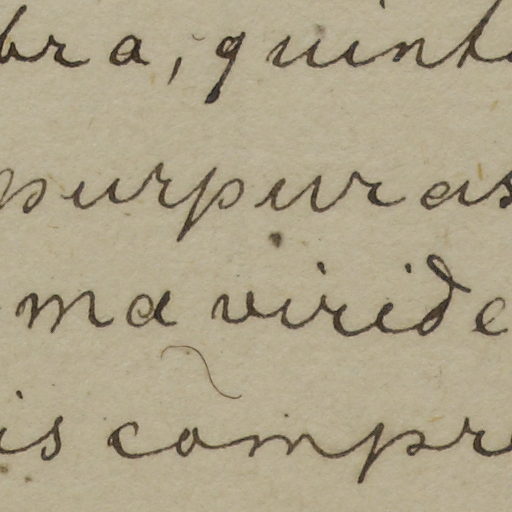 bra, quint
purpuras
ma viride
is compre